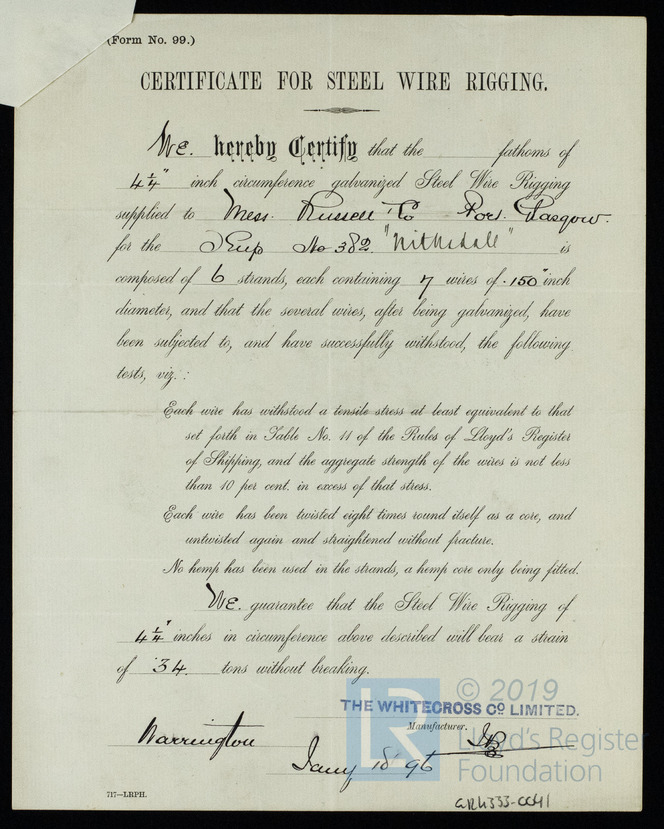 (Form No. 99.)
CERTIFICATE FOR STEEL WIRE RIGGING.
We hereby Certify that the fathoms of
4 1/4" inch circumference galvanized Steel Wire Rigging
supplied to Mess. Russell & Co Port Glasgow.
for the Ship No 382 "Nithsdale" is
composed of 6 strands, each containing 7 wires of .150" inch
diameter, and that the several wires, after being galvanized, have
been subjected to, and have successfully withstood, the following
tests, viz.:
Each wire has withstood a tensile stress at least equivalent to that
set forth in Table No. 11 of the Rules of Lloyd's Register
of Shipping, and the aggregate strength of the wires is not less
than 10 per cent. in excess of that stress.
Each wire has been twisted eight times round itself as a core, and
untwisted again and straightened without fracture.
No hemp has been used in the strands, a hemp core only being fitted.
We guarantee that the Steel Wire Rigging of
4 1/4" inches in circumference above described will bear a strain
of 34 tons without breaking.
© 2019
THE WHITECROSS Co LIMITED.
Manufacturer.
LR
Lloyd's Register
Foundation
Warrington
Jany 18 96
717—LRPH.